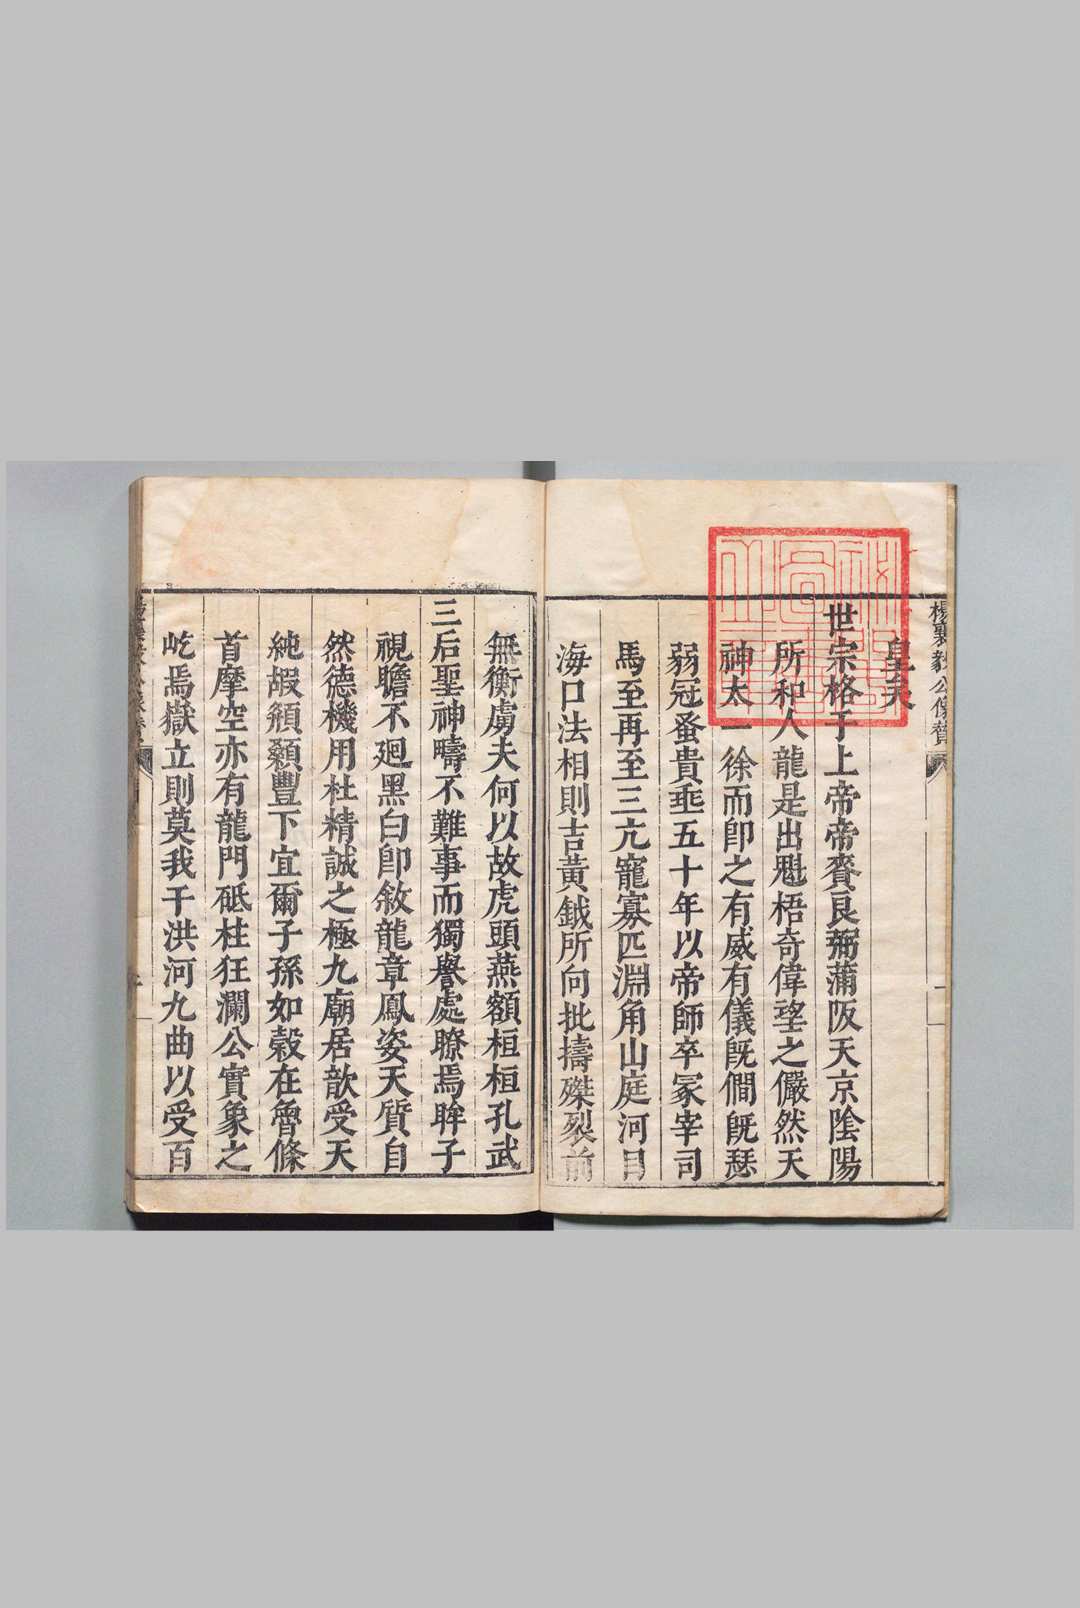 楊襄毅公像贊
皇矣
世宗格于上帝帝賚良弼蒲阪天京陰陽
所和人龍是出魁梧奇偉望之儼然天
神太一徐而卽之有威有儀旣僩旣瑟
弱冠蚤貴垂五十年以帝師卒冢宰司
馬至再至三亢寵寡匹淵角山庭河目
海口法相則吉黃鉞所向批擣磔裂前
無衡虜夫何以故虎頭燕額桓桓孔武
三后聖神疇不難事而獨譽處瞭焉眸子
視瞻不廻黑白卽敘龍章鳳姿天質自
然德機用杜精誠之極九廟居歆受天
純嘏頯顙豐下宜爾子孫如穀在魯條
首摩空亦有龍門砥柱狂瀾公實象之
屹焉嶽立則莫我干洪河九曲以受百